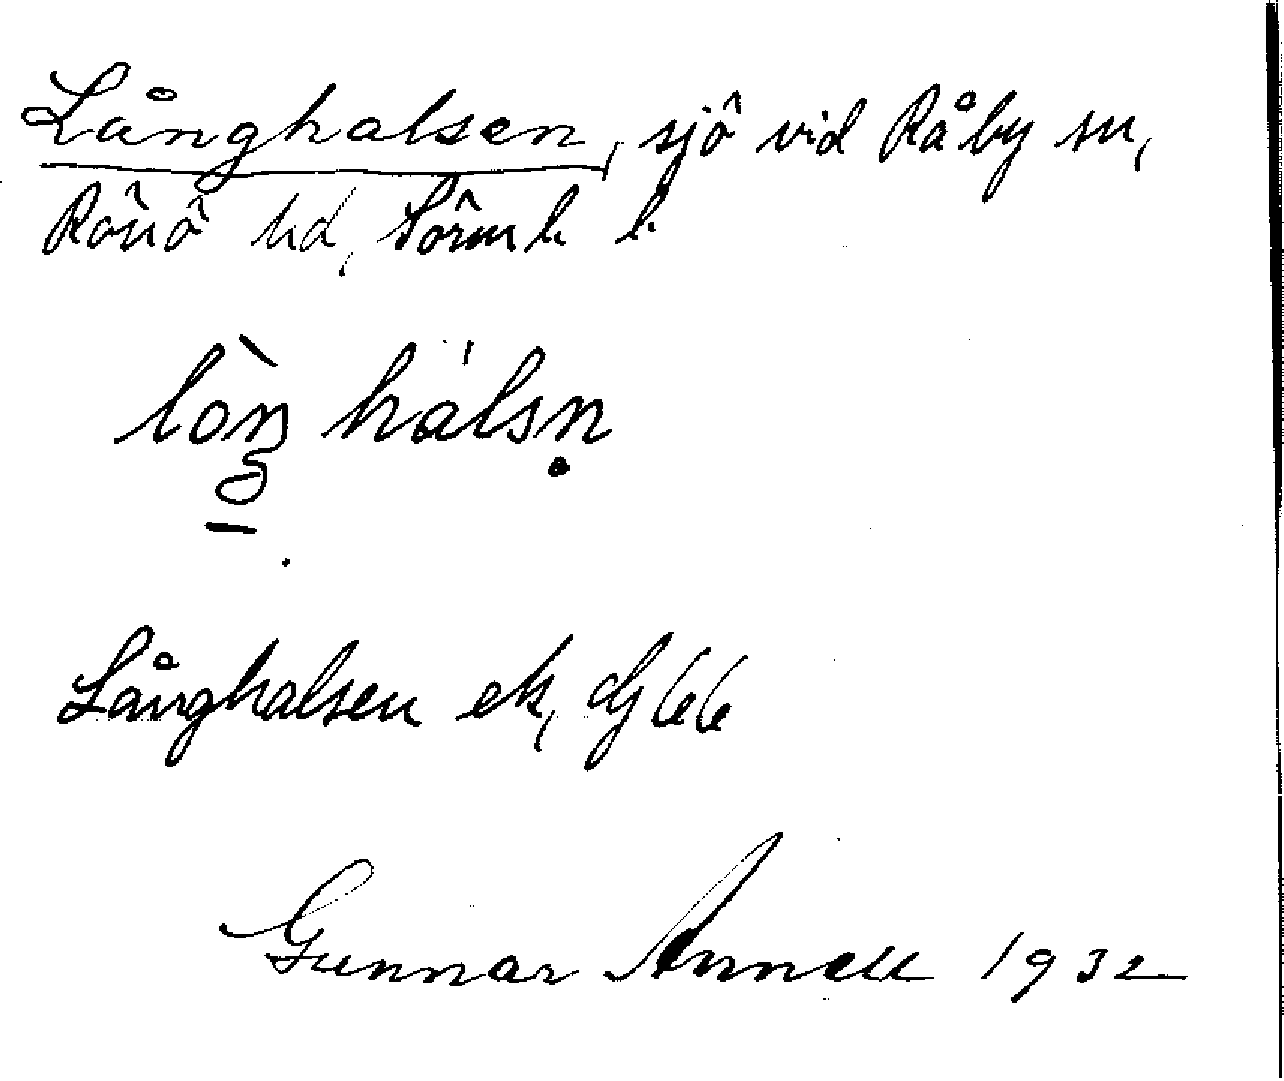 Långhalsen, sjö vid Råby sn,
Rönö hd, Sörml. l.
lòŋ hálsṇ
Långhalsen ek, dj 66
Gunnar Annell 1932